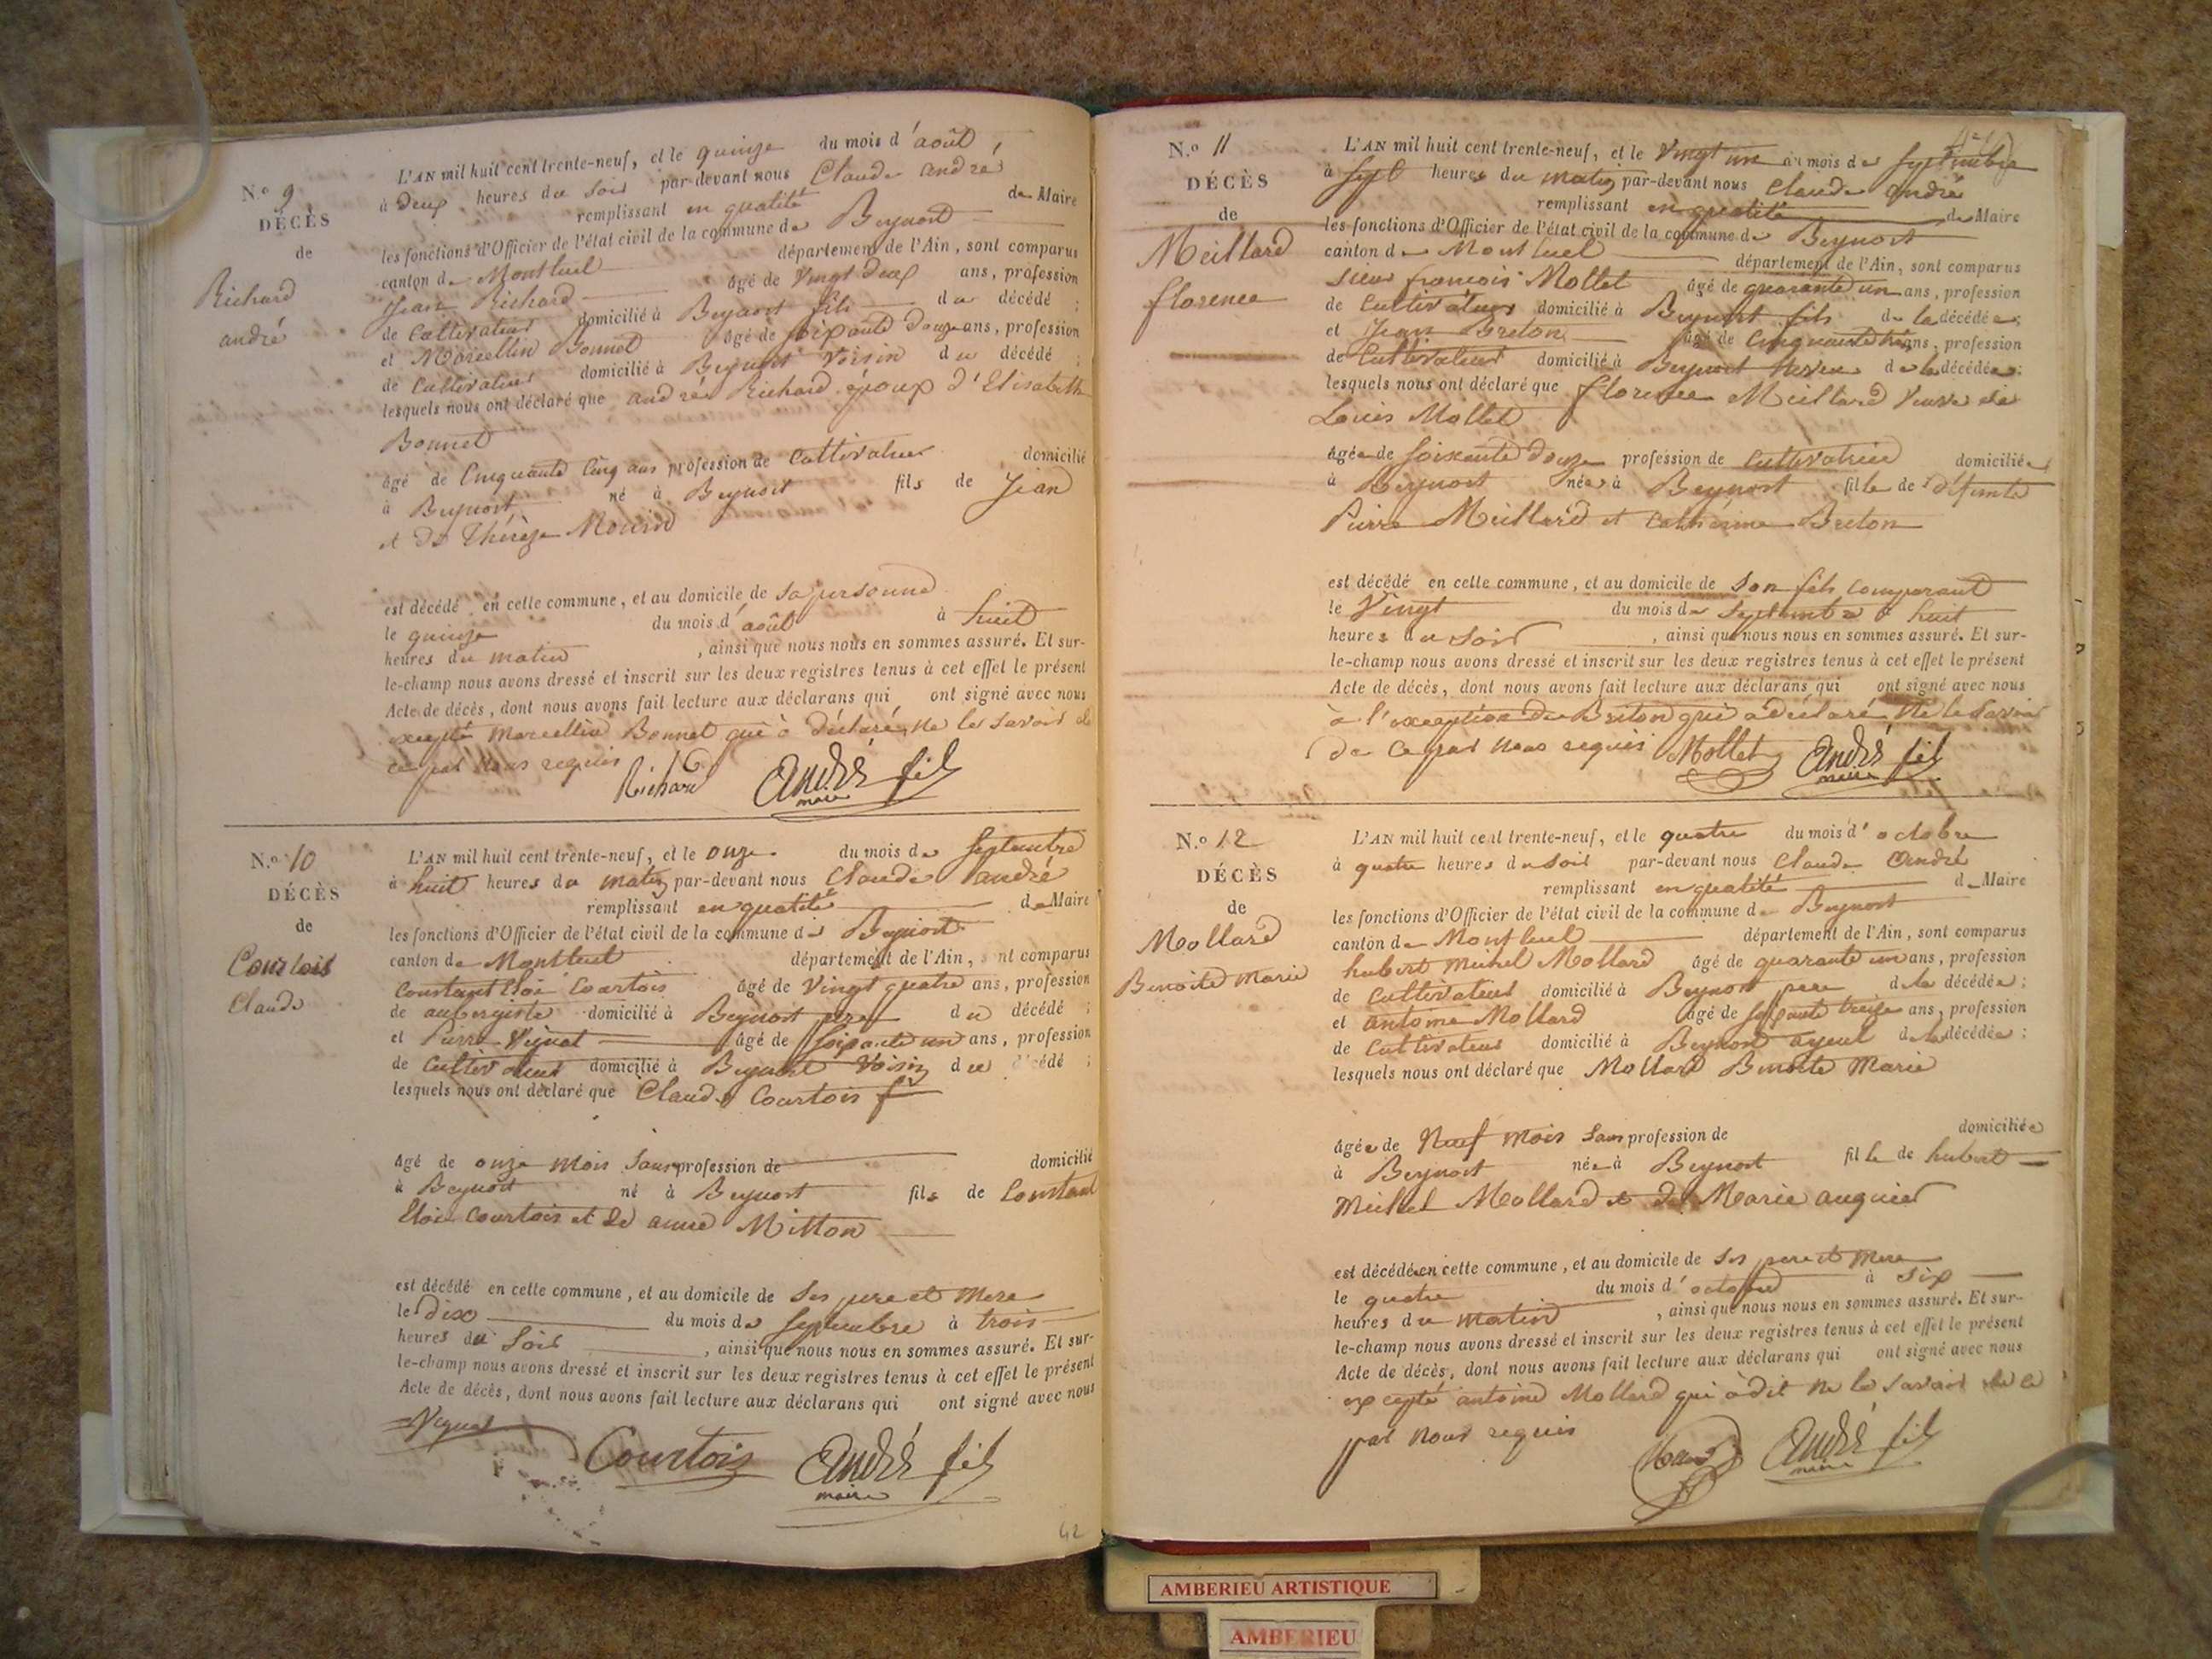 N.o 9
DÉCÈS
de
Richard
andré
L'AN mil huit cent trente-neuf, et le quinze du mois d'août
à deux heures du soir par-devant nous Claude andré
remplissant en qualité de Maire
les fonctions d'Officier de l'état civil de la commune de Beynost
canton de Montluel département de l'Ain, sont comparus
Jean Richard âgé de vingt deux ans, profession
de Cultivateur domicilié à Beynost fils du décédé ;
et Marcellin Bonnet âgé de soixante douze ans, profession
de Cultivateur domicilié à Beynost voisin du décédé ;
lesquels nous ont déclaré que andré Richard époux d'Elisabeth
Bonnet
âgé de Cinquante Cinq ans profession de Cultivateur domicilié
à Beynost né à Beynost fils de Jean
et de Thérèze Mouin
est décédé en cette commune, et au domicile de sa personne
le quinze du mois d'août à huit
heures du matin , ainsi que nous nous en sommes assuré. Et sur-
le-champ nous avons dressé et inscrit sur les deux registres tenus à cet effet le présent
Acte de décès, dont nous avons fait lecture aux déclarans qui ont signé avec nous
excepté Marcellin Bonnet qui à déclaré ne le savoir de
ce par nous requis
Richard André fils
maire
N.o 10
DÉCÈS
de
Courtois
Claude
L'AN mil huit cent trente-neuf, et le onze du mois de Septembre
à huit heures du matin par-devant nous Claude andré
remplissant en qualité de Maire
les fonctions d'Officier de l'état civil de la commune de Beynost
canton de Montluel département de l'Ain, sont comparus
Constant Eloi Courtois âgé de vingt quatre ans, profession
de aubergiste domicilié à Beynost pere du décédé ;
et Pierre Vignat âgé de soixante un ans, profession
de Cultivateur domicilié à Beynost voisin du décédé ;
lesquels nous ont déclaré que Claude Courtois
âgé de onze mois sans profession de domicilié
à Beynost né à Beynost fils de Constant
Eloi Courtois et de anne Mitton
est décédé en cette commune, et au domicile de ses pere et mere
le dix du mois de Septembre à trois
heures du soir , ainsi que nous nous en sommes assuré. Et sur-
le-champ nous avons dressé et inscrit sur les deux registres tenus à cet effet le présent
Acte de décès, dont nous avons fait lecture aux déclarans qui ont signé avec nous
Vignat Courtois André fils
maire
42
N.o 11
DÉCÈS
de
Meillard
florence
L'AN mil huit cent trente-neuf, et le vingt un du mois de Septembre
à sept heures du matin par-devant nous Claude andré
remplissant en qualité de Maire
les fonctions d'Officier de l'état civil de la commune de Beynost
canton de Montluel département de l'Ain, sont comparus
sieur francois Mollet âgé de quarante un ans, profession
de Cultivateur domicilié à Beynost fils de la décédée ;
et Jean Breton âgé de Cinquante ans, profession
de Cultivateur domicilié à Beynost neveu de la décédée ;
lesquels nous ont déclaré que florence Meillard veuve de
Louis Mollet
âgée de soixante douze profession de cultivatrice domiciliée
à Beynost née à Beynost fille de défunts
Pierre Meillard et Catherine Breton
est décédé en cette commune, et au domicile de son fils comparant
le Vingt du mois de Septembre à huit
heures du soir , ainsi que nous nous en sommes assuré. Et sur-
le-champ nous avons dressé et inscrit sur les deux registres tenus à cet effet le présent
Acte de décès, dont nous avons fait lecture aux déclarans qui ont signé avec nous
à l'exception de Breton qui a déclaré ne le savoir
de ce par nous requis Mollet André fils
maire
N.o 12
DÉCÈS
de
Mollard
Benoite Marie
L'AN mil huit cent trente-neuf, et le quatre du mois d'octobre
à quatre heures du soir par-devant nous Claude André
remplissant en qualité de Maire
les fonctions d'Officier de l'état civil de la commune de Beynost
canton de Montluel département de l'Ain, sont comparus
hubert Michel Mollard âgé de quarante un ans, profession
de Cultivateur domicilié à Beynost pere de la décédée ;
et antoine Mollard âgé de soixante treize ans, profession
de Cultivateur domicilié à Beynost ayeul de la décédée ;
lesquels nous ont déclaré que Mollard Benoite Marie
âgée de Neuf mois sans profession de domiciliée
à Beynost née à Beynost fille de hubert
Michel Mollard et de Marie auguier
est décédée en cette commune, et au domicile de ses pere et mere
le quatre du mois d'octobre à six
heures du matin , ainsi que nous nous en sommes assuré. Et sur-
le-champ nous avons dressé et inscrit sur les deux registres tenus à cet effet le présent
Acte de décès, dont nous avons fait lecture aux déclarans qui ont signé avec nous
excepté antoine Mollard qui à dit ne le savoir de ce
par nous requis
André fils
maire
AMBERIEU ARTISTIQUE
AMBERIEU